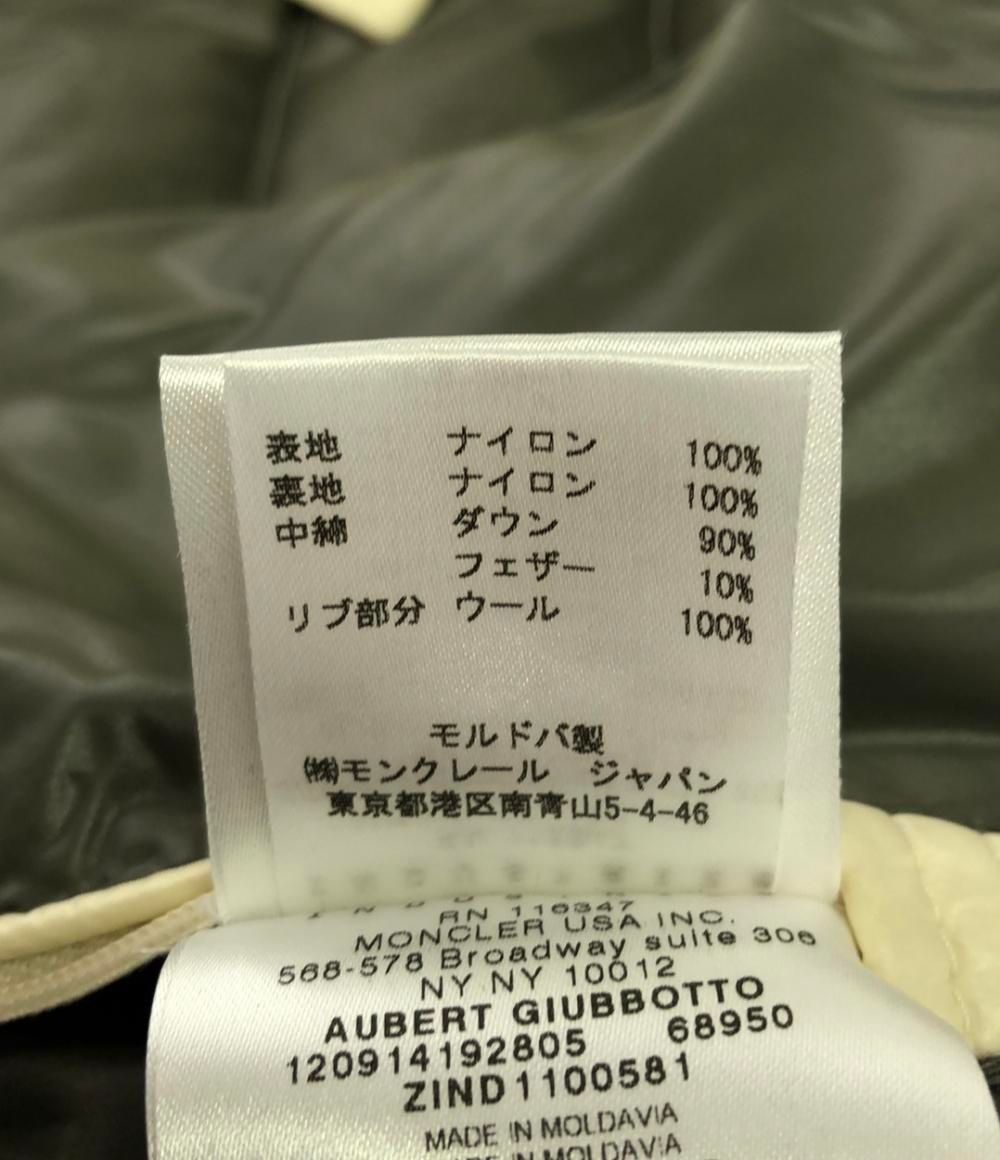 表地 ナイロン 100%
裏地 ナイロン 100%
中綿 ダウン 90%
フェザー 10%
リブ部分 ウール 100%
モルドバ製
㈱モンクレール ジャパン
東京都港区南青山5-4-46
RN 116347
MONCLER USA INC.
568-578 Broadway suite 306
NY NY 10012
AUBERT GIUBBOTTO
120914192805 68950
ZIND1100581
MADE IN MOLDAVIA
MADE IN MOLDAVIA